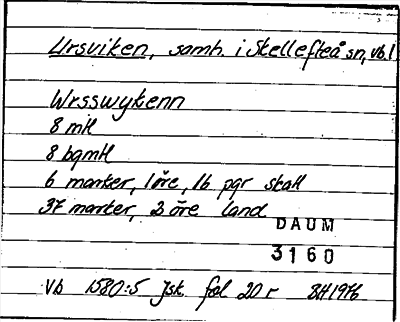 Ursviken, samh. i Skellefteå sn, vb.l
Wrsswykenn
8 mtl
8 bgmtl
6 marker, 1 öre, 16 pgr skatt
37 marker, 2 öre land
DAUM
3160
Vb 1580:5 Jsk fol 20 r BH 1976